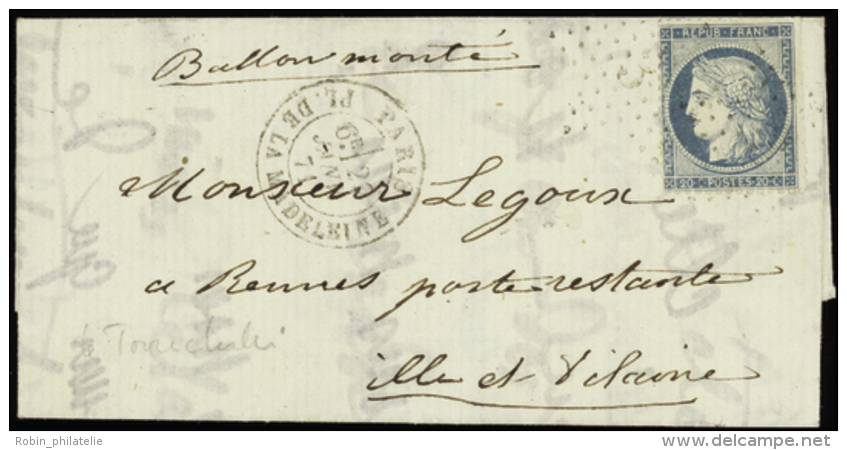 Ballon monté
REPUB. FRANC.
20 C POSTES 20 C
PARIS
PL. DE LA MADELEINE
6E
JANV.
71
Monsieur Legoux
a Rennes poste restante
ille et Vilaine
Robin_philatelie
delcampe.net